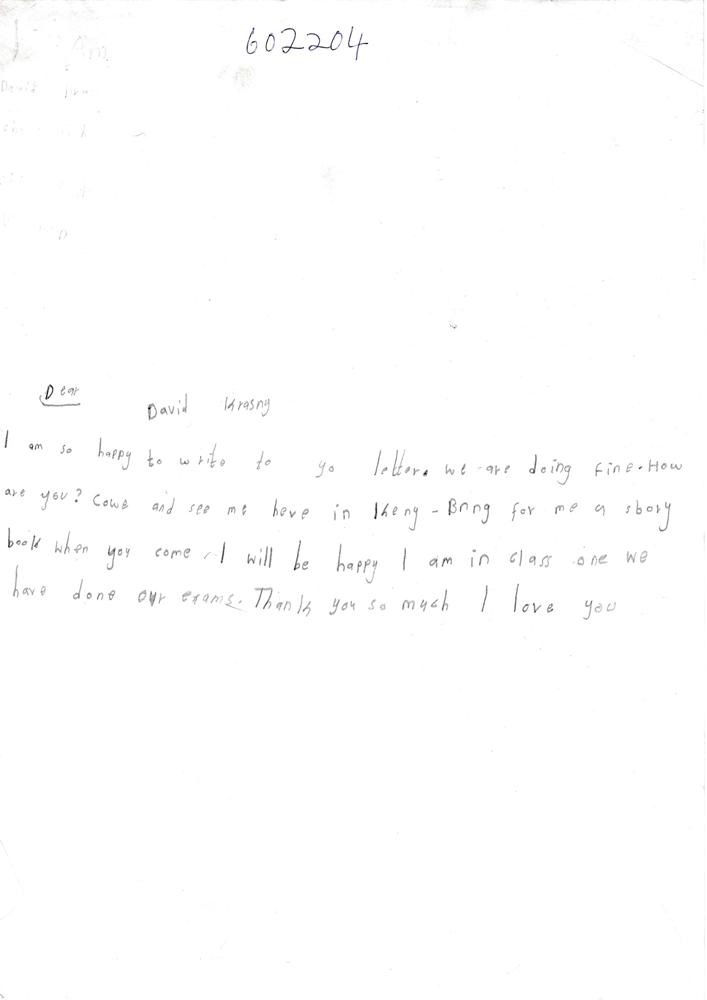 602204
Dear
David Krasny
I am so happy to write to yo letter. we are doing fine. How
are you? Come and see me here in Keny - Bring for me a story
book when you come. I will be happy I am in class one we
have done our exams. Thank you so much I love you